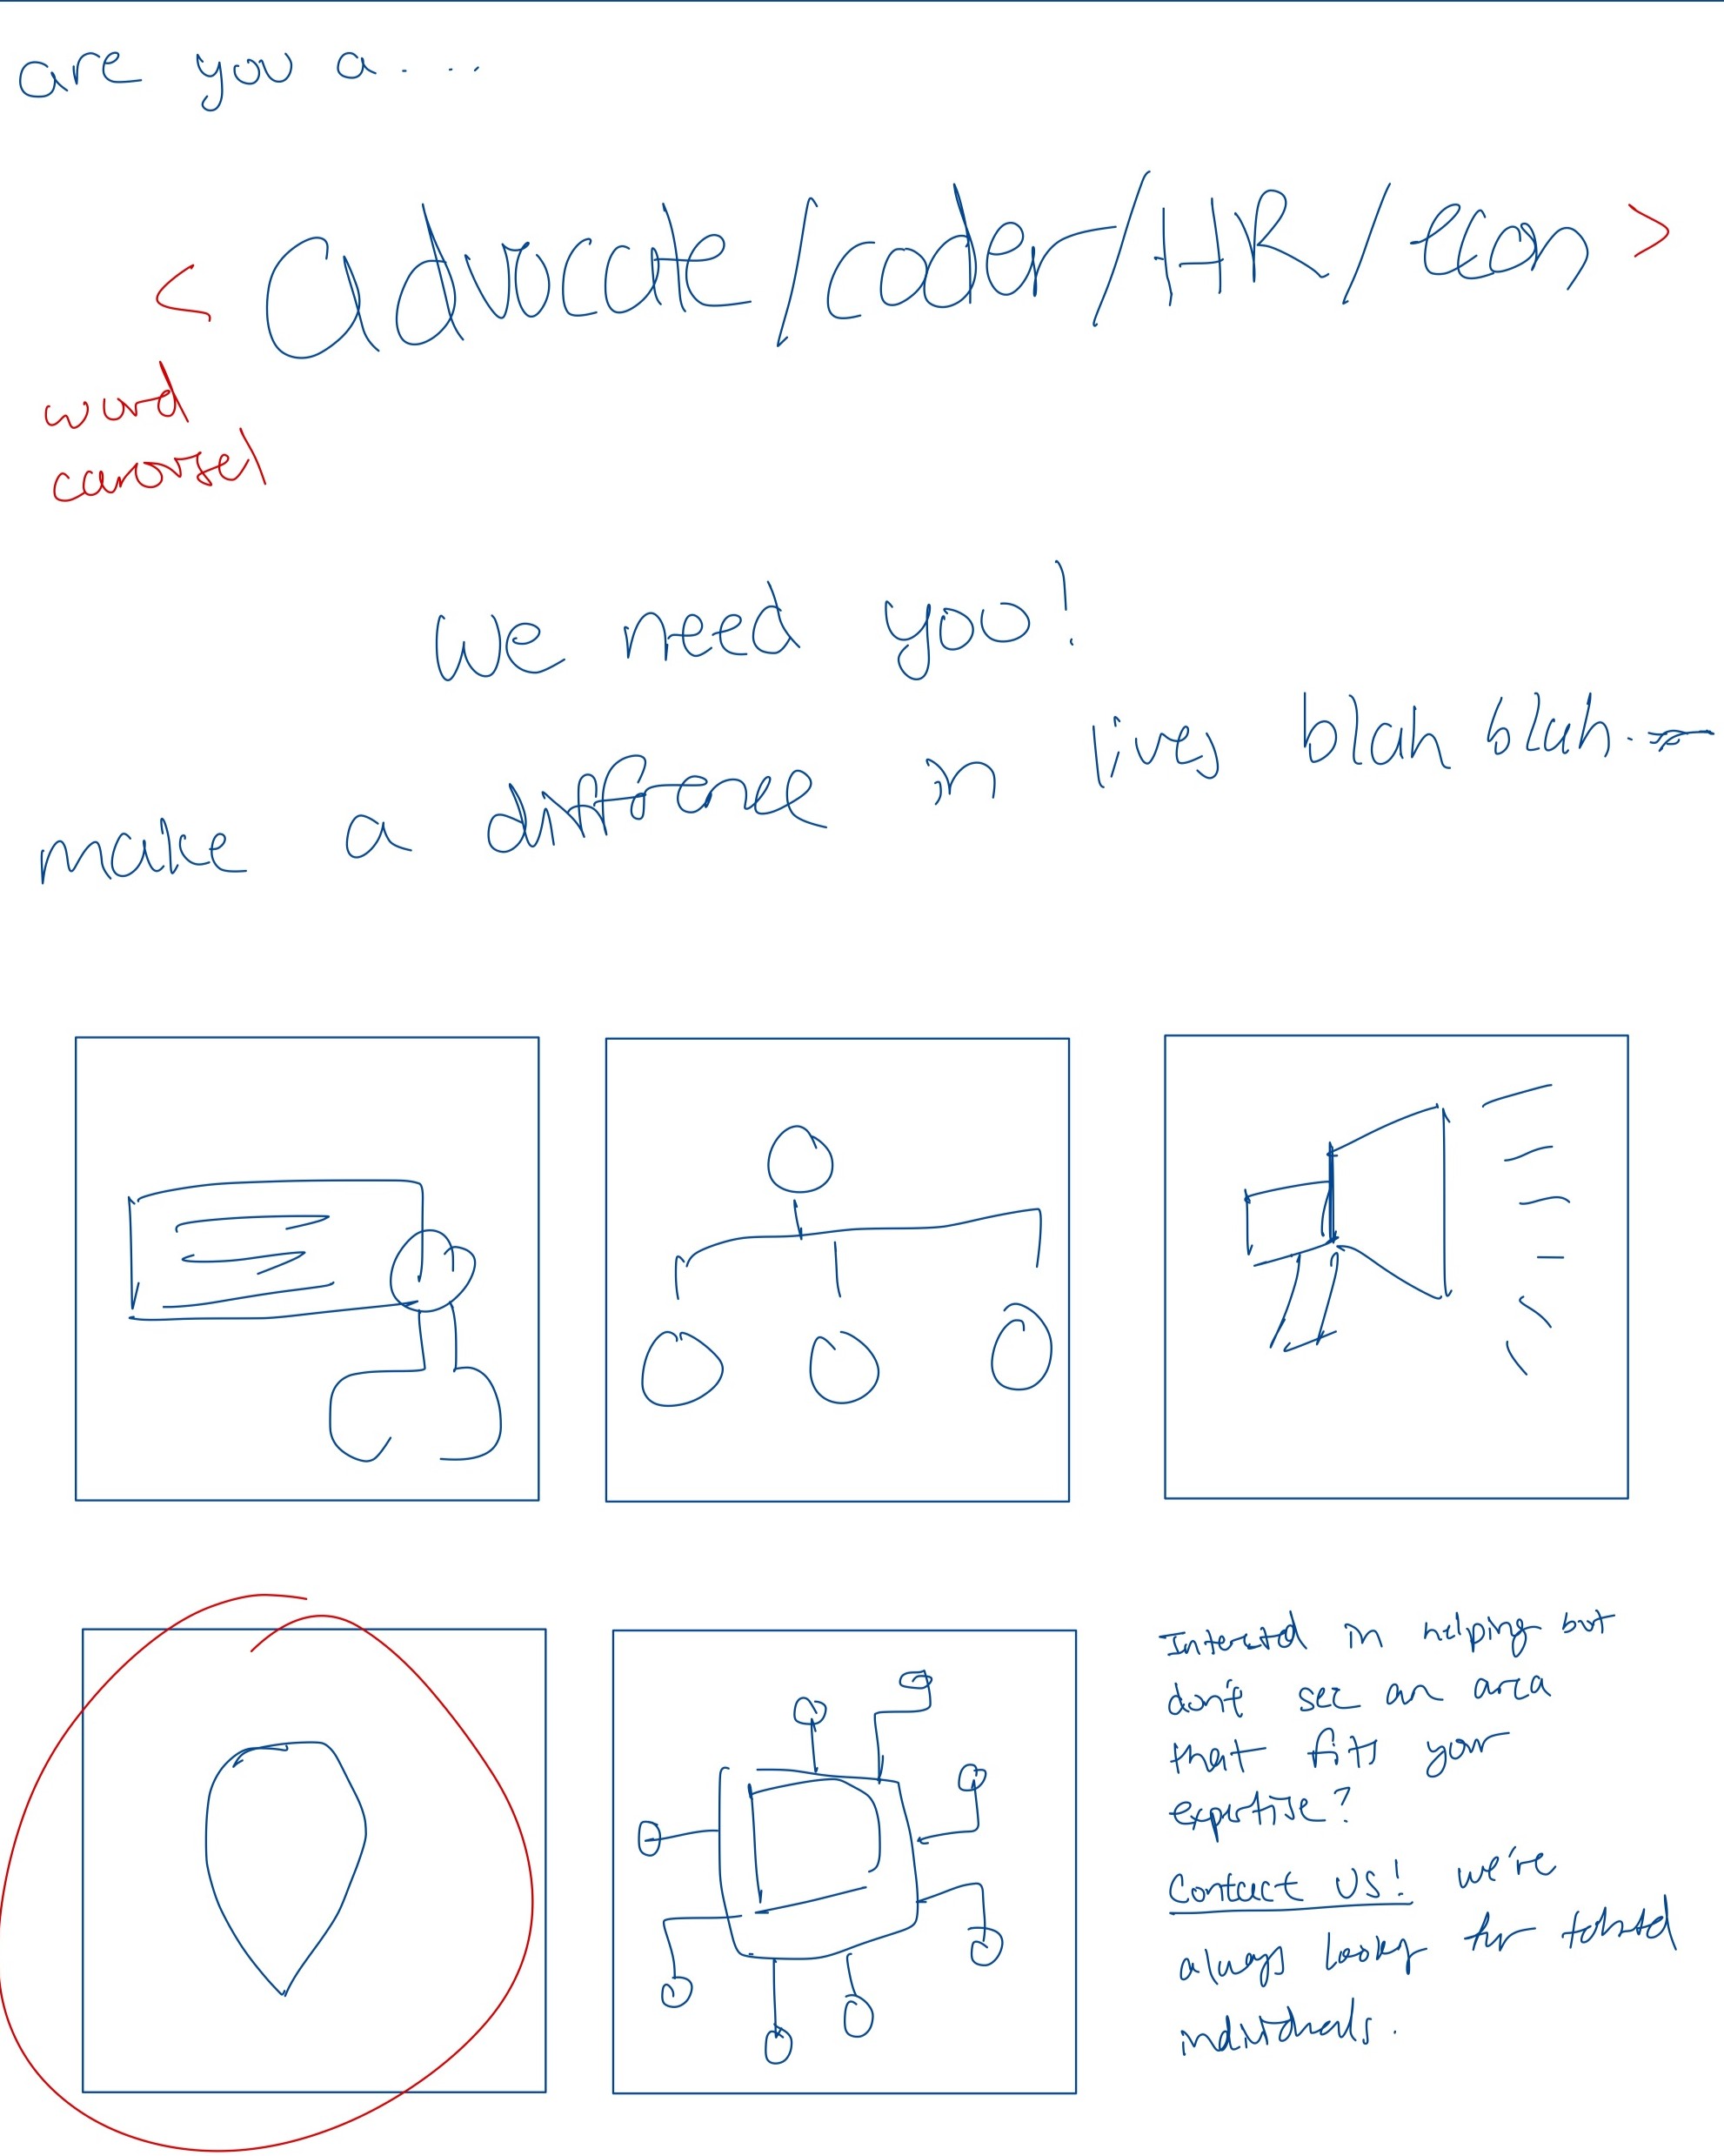 are you a....
< advocate/coder/HR/econ >
word
carousel
We need you!
make a difference in lives blah blah..
Interested in helping but
don't see an area
that fits your
expertise?
Contact us! we're
always looking for talented
individuals.